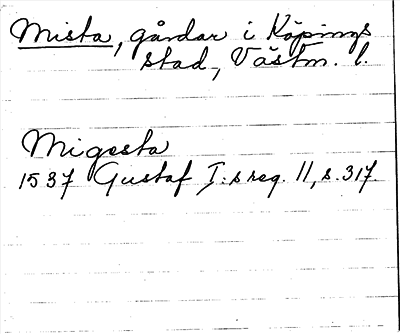 Mista, gårdar i Köpings
stad, Västm. l.
Migesta
1537 Gustaf I:s reg. 11, s. 317